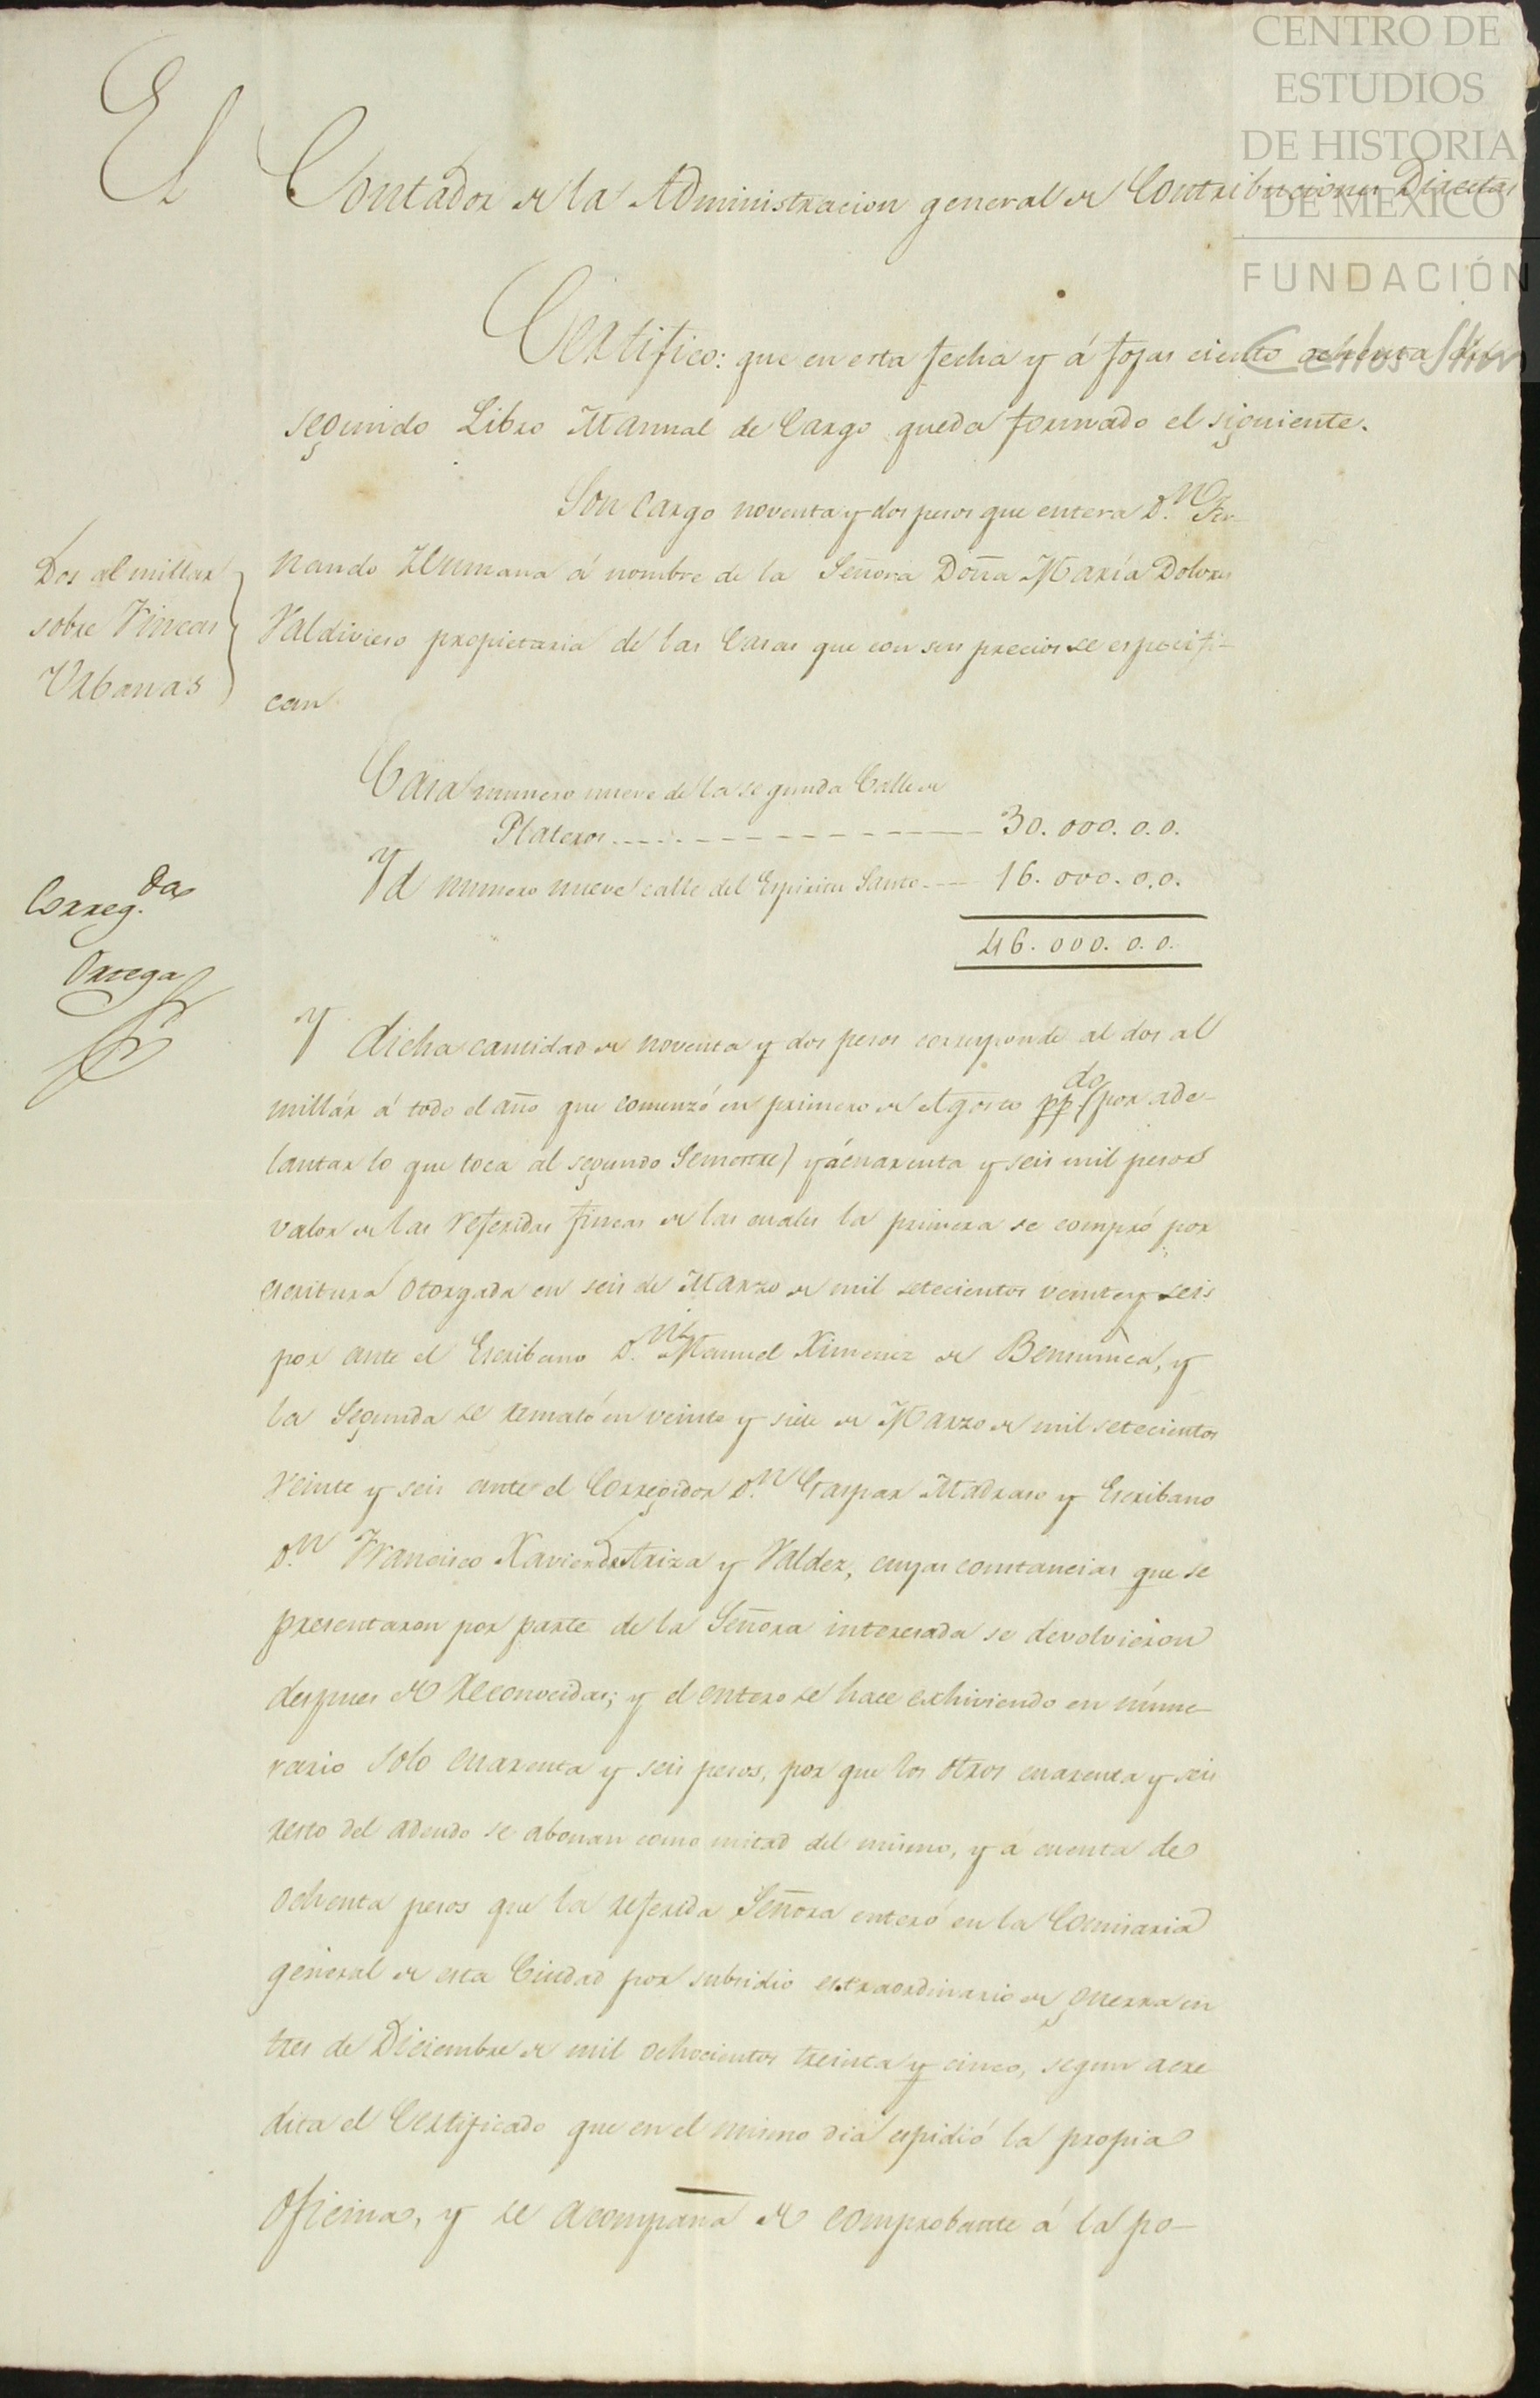 CENTRO DE
ESTUDIOS
DE HISTORIA
DE MÉXICO
FUNDACIÓN
Carlos Slim
El Contador de la Administracion general de Contribuciones Directas
Certifico: que en esta fecha y á fojas ciento ochenta del
segundo Libro Manual de Cargo queda formado el siguiente.
Dos al millar
sobre Fincas
Urbanas
Son cargo noventa y dos pesos que entera D.n Fer-
nando á nombre de la Señora Doña María Dolores
Valdivieso propietaria de las Casas que con sus precios se especifi-
can
Casa numero nueve de la segunda Calle de
Plateros 30.000.0.0.
Yd numero nueve calle del Espiritu Santo 16.000.0.0.
46.000.0.0.
Correg.da
Ortega
Y dicha cantidad de noventa y dos pesos corresponde al dos al
millár á todo el año que comenzó en primero de Agosto pp.do (por ade-
lantar lo que toca al segundo Semestre) y á cuarenta y seis mil pesos
valor de las referidas fincas de las cuales la primera se compró por
escritura otorgada en seis de Marzo de mil setecientos veinte y seis
por ante el Escribano D.n Manuel Ximenez de Benjumea, y
la Segunda se remató en veinte y siete de Marzo de mil setecientos
veinte y seis ante el Corregidor D.n Gaspar Madraso y Escribano
D.n Francisco Xavier de Ariza y Valdez, cuyas constancias que se
presentaron por parte de la Señora interesada se devolvieron
despues de reconocidas; y el entero se hace exhiviendo en núme-
rario solo cuarenta y seis pesos, por que los otros cuarenta y seis
resto del adeudo se abonan como mitad del mismo, y á cuenta de
ochenta pesos que la referida Señora enteró en la Comisaria
general de esta Ciudad por subsidio extraordinario de guerra en
tres de Diciembre de mil ochocientos treinta y cinco, segun acre
dita el Certificado que en el mismo dia espidió la propia
Oficina, y se acompaña de comprobante á la po-